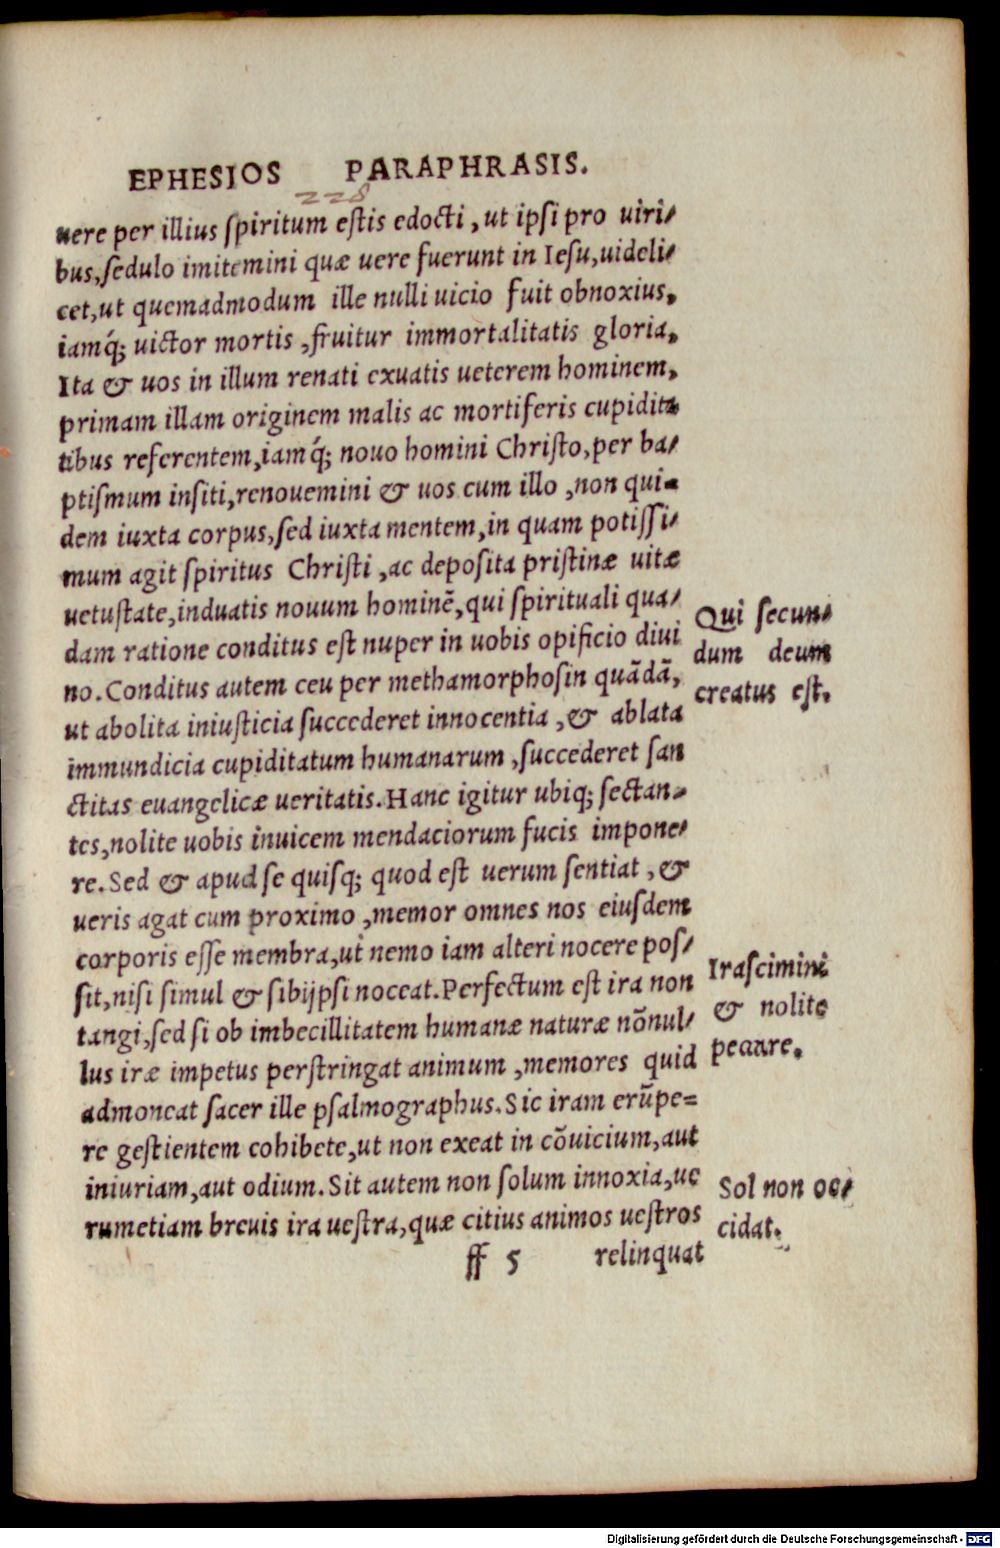 EPHESIOS PARAPHRASIS.
228
uere per illius ſpiritum eſtis edocti, ut ipſi pro uiri⸗
bus, ſedulo imitemini quæ uere fuerunt in Ieſu, uideli⸗
cet, ut quemadmodum ille nulli uicio fuit obnoxius,
iamq́; uictor mortis, fruitur immortalitatis gloria,
Ita & uos in illum renati exuatis ueterem hominem,
primam illam originem malis ac mortiferis cupidita
tibus referentem, iamq́; nouo homini Chriſto, per ba⸗
ptiſmum inſiti, renouemini & uos cum illo, non qui⸗
dem iuxta corpus, ſed iuxta mentem, in quam potiſſi⸗
mum agit ſpiritus Chriſti, ac depoſita priſtinæ uitæ
uetuſtate, induatis nouum hominē, qui ſpirituali qua⸗
dam ratione conditus eſt nuper in uobis opificio diui
no. Conditus autem ceu per methamorphoſin quādā,
ut abolita iniuſticia ſuccederet innocentia, & ablata
immundicia cupiditatum humanarum, ſuccederet ſan
ctitas euangelicæ ueritatis. Hanc igitur ubiq; ſectan⸗
tes, nolite uobis inuicem mendaciorum fucis impone⸗
re. Sed & apud ſe quiſq; quod eſt uerum ſentiat, &
ueris agat cum proximo, memor omnes nos eiuſdem
corporis eſſe membra, ut nemo iam alteri nocere poſ⸗
ſit, niſi ſimul & ſibijpſi noceat. Perfectum eſt ira non
tangi, ſed ſi ob imbecillitatem humanæ naturæ nōnul⸗
lus iræ impetus perſtringat animum, memores quid
admoneat ſacer ille pſalmographus. Sic iram erūpe⸗
re geſtientem cohibete, ut non exeat in cōuicium, aut
iniuriam, aut odium. Sit autem non ſolum innoxia, ue
rumetiam breuis ira ueſtra, quæ citius animos ueſtros
ff 5 relinquat
Qui ſecun⸗
dum deum
creatus eſt.
Iraſcimini
& nolite
peccare.
Sol non oc⸗
cidat.
Digitalisierung gefördert durch die Deutsche Forschungsgemeinschaft - DFG